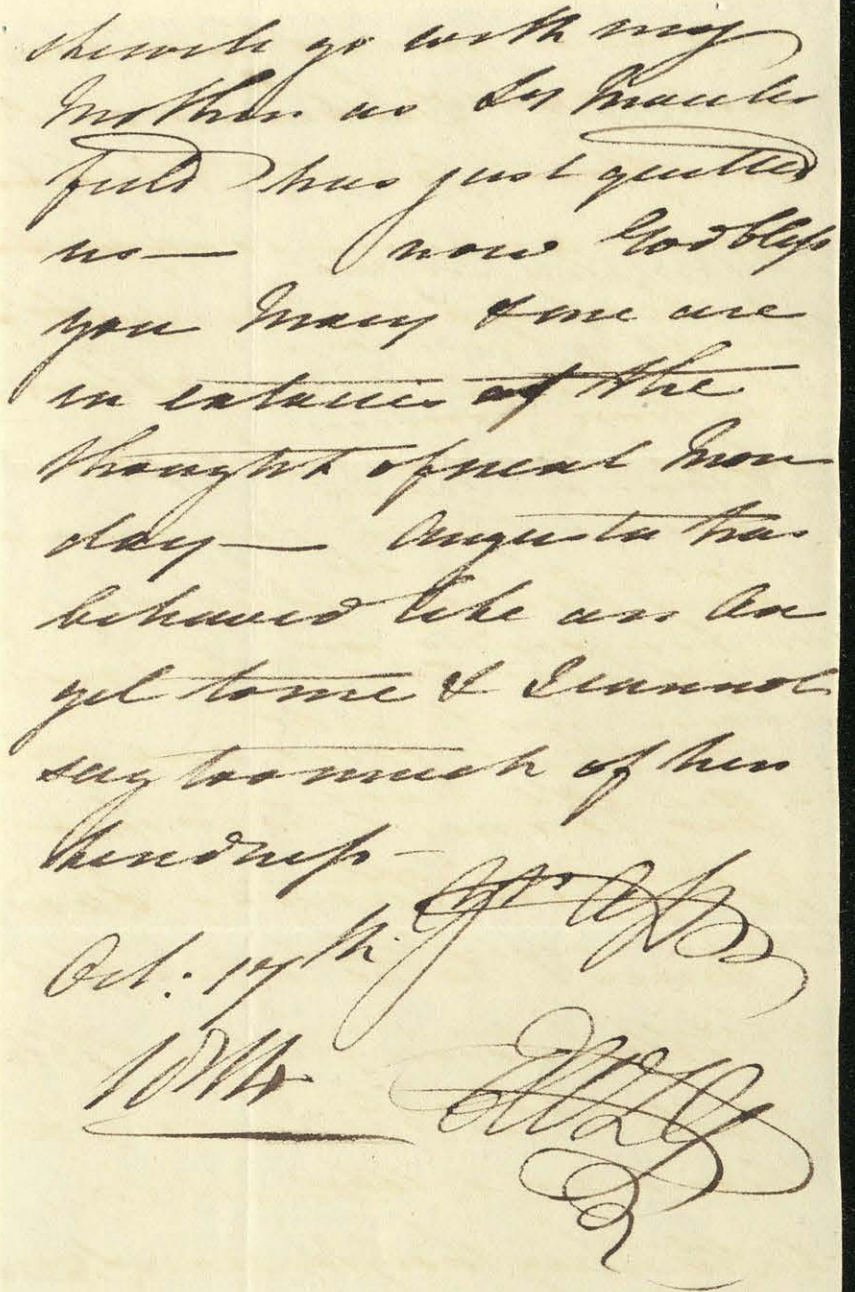 she will go with my
Mother as Ly Mansfield
field has just quitted
us — now God bless
you Mary & me are
in extacies at the
thought of next Mon
day — Augusta has
behaved like an An
gel to me & I cannot
say too much of her
kindness —
Yrs
Oct: 17th
1814